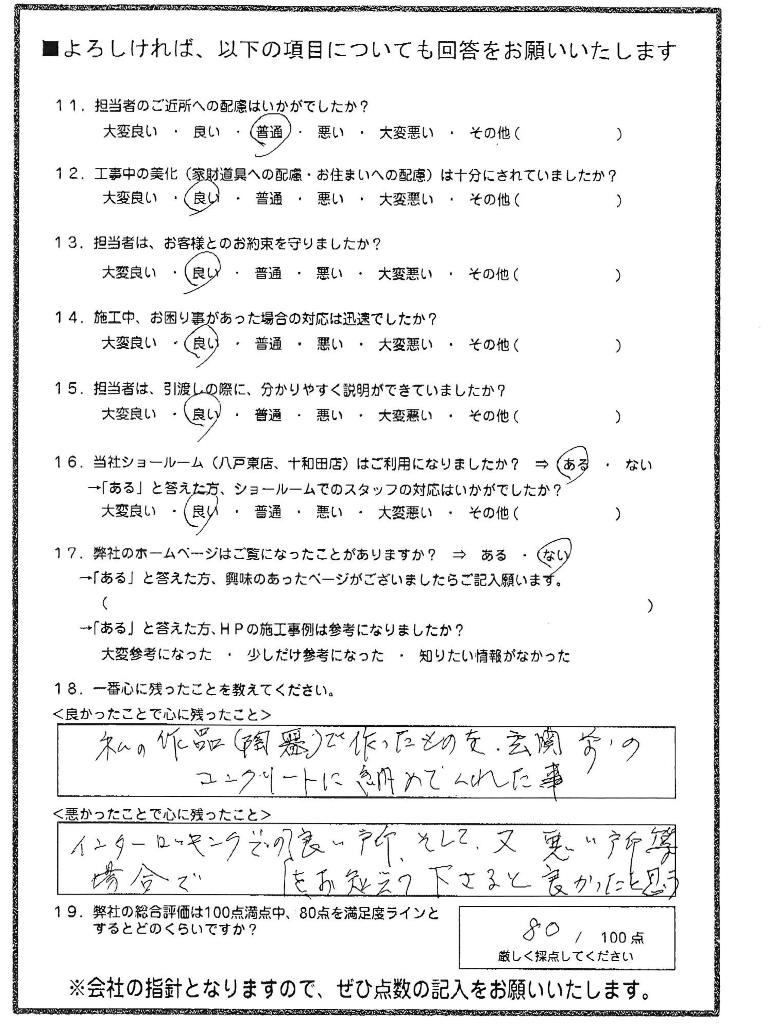 ■よろしければ、以下の項目についても回答をお願いいたします
11．担当者のご近所への配慮はいかがでしたか？
大変良い ・ 良い ・ 普通 ・ 悪い ・ 大変悪い ・ その他（　　　　　　）
12．工事中の美化（家財道具への配慮・お住まいへの配慮）は十分にされていましたか？
大変良い ・ 良い ・ 普通 ・ 悪い ・ 大変悪い ・ その他（　　　　　　）
13．担当者は、お客様とのお約束を守りましたか？
大変良い ・ 良い ・ 普通 ・ 悪い ・ 大変悪い ・ その他（　　　　　　）
14．施工中、お困り事があった場合の対応は迅速でしたか？
大変良い ・ 良い ・ 普通 ・ 悪い ・ 大変悪い ・ その他（　　　　　　）
15．担当者は、引渡しの際に、分かりやすく説明ができていましたか？
大変良い ・ 良い ・ 普通 ・ 悪い ・ 大変悪い ・ その他（　　　　　　）
16．当社ショールーム（八戸東店、十和田店）はご利用になりましたか？ ⇒ ある ・ ない
→「ある」と答えた方、ショールームでのスタッフの対応はいかがでしたか？
大変良い ・ 良い ・ 普通 ・ 悪い ・ 大変悪い ・ その他（　　　　　　）
17．弊社のホームページはご覧になったことがありますか？ ⇒ ある ・ ない
→「ある」と答えた方、興味のあったページがございましたらご記入願います。
（　　　　　　）
→「ある」と答えた方、HPの施工事例は参考になりましたか？
大変参考になった ・ 少しだけ参考になった ・ 知りたい情報がなかった
18．一番心に残ったことを教えてください。
＜良かったことで心に残ったこと＞
私の作品（陶器）で作ったものを、玄関前の
コンクリートに納めてくれた事
＜悪かったことで心に残ったこと＞
インターロッキングの良い所、そして、又 悪い所等
場合で をお知らせ下さると良かったと思う
19．弊社の総合評価は100点満点中、80点を満足度ラインと
するとどのくらいですか？
80 / 100点
厳しく採点してください
※会社の指針となりますので、ぜひ点数の記入をお願いいたします。